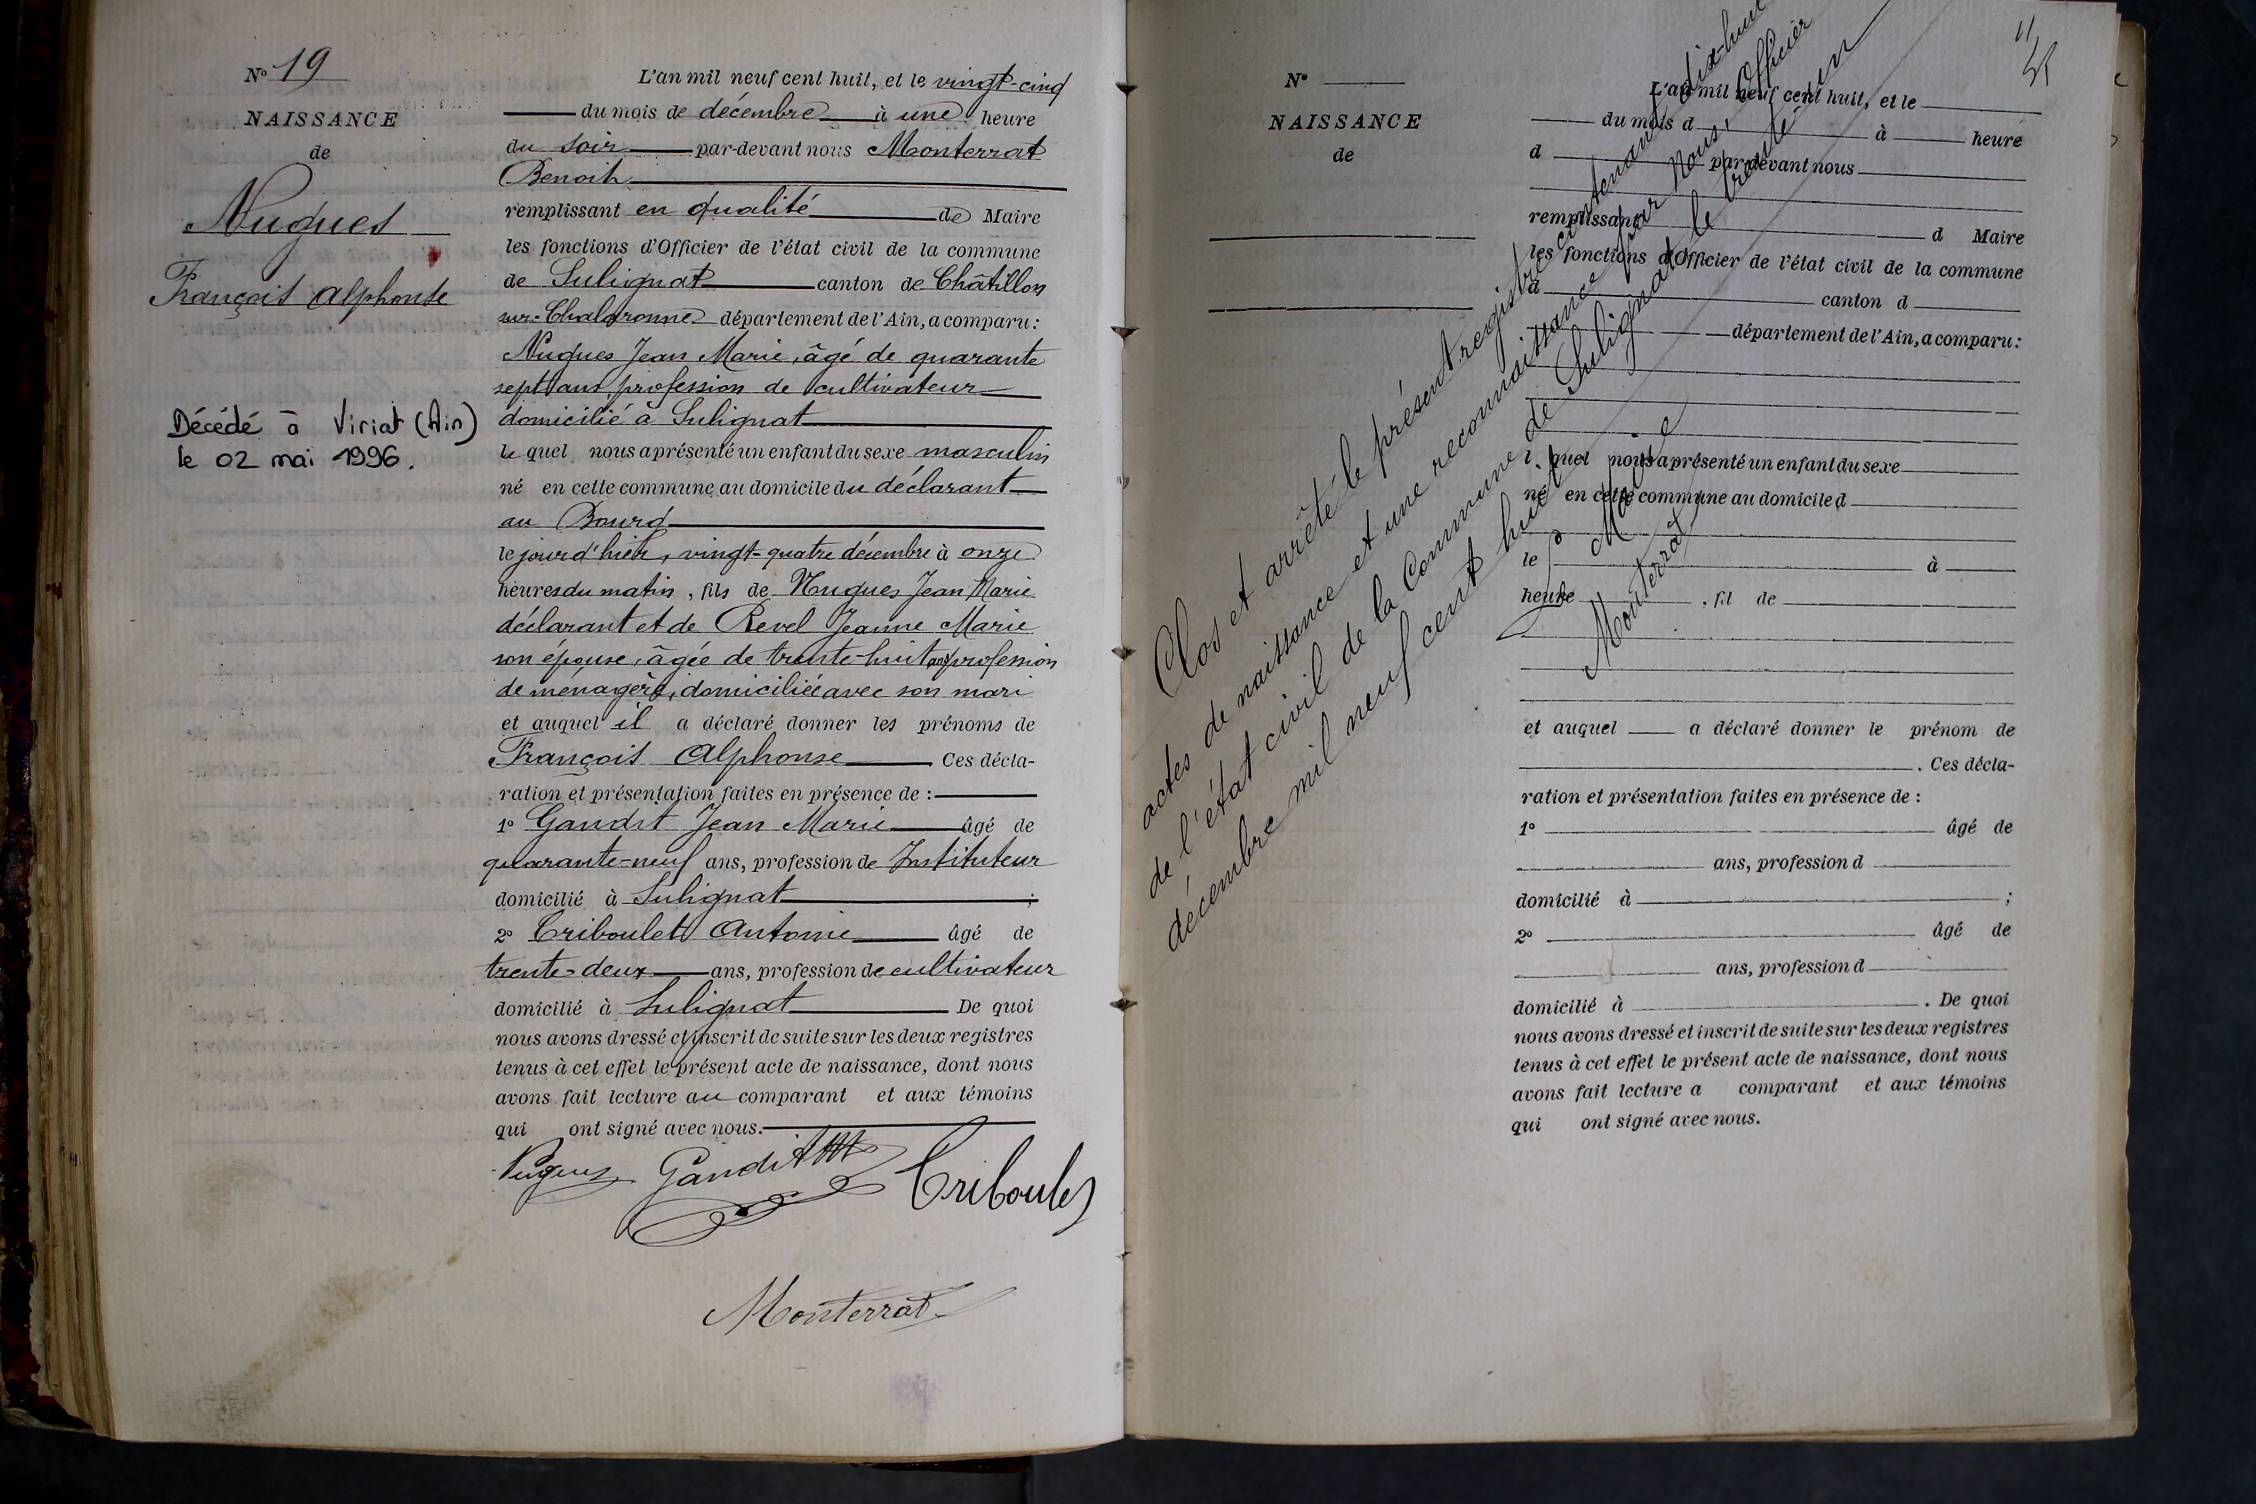 N° 19
NAISSANCE
de
Nugues
François Alphonse
Décédé à Viriat (Ain)
le 02 mai 1996.
L'an mil neuf cent huit, et le vingt-cinq
du mois de décembre à une heure
du soir par-devant nous Monterrat
Benoit
remplissant en qualité de Maire
les fonctions d'Officier de l'état civil de la commune
de Sulignat canton de Châtillon
sur-Chalaronne département de l'Ain, a comparu :
Nugues Jean Marie, âgé de quarante
sept ans, profession de cultivateur
domicilié à Sulignat
le quel nous a présenté un enfant du sexe masculin
né en cette commune au domicile du déclarant
au Bourg
le jour d'hier, vingt-quatre décembre à onze
heures du matin, fils de Nugues Jean Marie
déclarant et de Revel Jeanne Marie
son épouse, âgée de trente-huit ans profession
de ménagère, domiciliée avec son mari
et auquel il a déclaré donner les prénoms de
François Alphonse Ces décla-
ration et présentation faites en présence de :
1° Gandit Jean Marie âgé de
quarante-neuf ans, profession de Instituteur
domicilié à Sulignat ;
2° Triboulet Antoine âgé de
trente-deux ans, profession de cultivateur
domicilié à Sulignat De quoi
nous avons dressé et inscrit de suite sur les deux registres
tenus à cet effet le présent acte de naissance, dont nous
avons fait lecture au comparant et aux témoins
qui ont signé avec nous.
Nugues Gandit Triboulet
Monterrat
N°
NAISSANCE
de
L'an mil neuf cent huit, et le
du mois d à heure
d par-devant nous
remplissant d Maire
les fonctions d'Officier de l'état civil de la commune
d canton d
département de l'Ain, a comparu :
l quel nous a présenté un enfant du sexe
né en cette commune au domicile d
le à
heure , fil de
et auquel a déclaré donner le prénom de
. Ces décla-
ration et présentation faites en présence de :
1° âgé de
ans, profession d
domicilié à ;
2° âgé de
ans, profession d
domicilié à . De quoi
nous avons dressé et inscrit de suite sur les deux registres
tenus à cet effet le présent acte de naissance, dont nous
avons fait lecture a comparant et aux témoins
qui ont signé avec nous.
Clos et arrêté le présent registre contenant dix-huit
actes de naissance et une reconnaissance par nous, Officier
de l'état civil de la Commune de Sulignat le trente un
décembre mil neuf cent huit
Le Maire
Monterrat